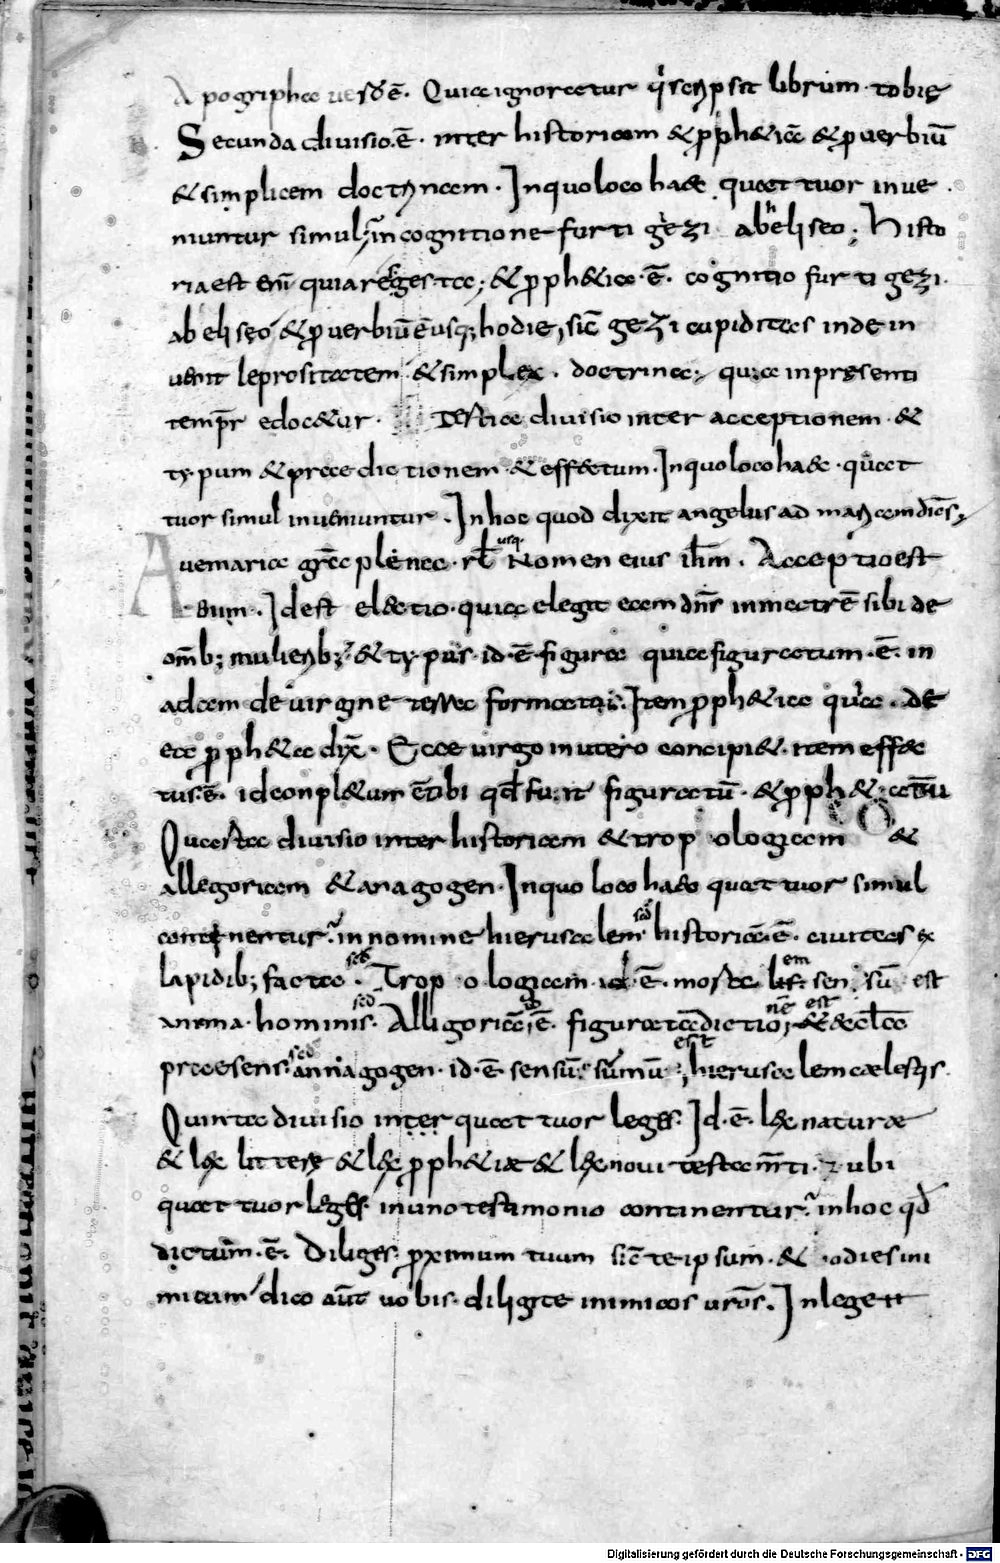 Apogriphæ uero ē. Quia ignoratur q̇ scripsit librum tobię
Secunda diuisio .ē. inter historicam & p̱ph&icā & p̱uerbiū
& simplicem doctrinam. In quo loco haec quattuor inue
niuntur simul; in cognitione furti gezi ab heliseo; Histo
ria est enī quia res gestæ; & p̱ph&ica .ē. cognitio furti gezi.
ab eliseo & p̱uerbiū eiusq; hodie, sic̄ gezi cupiditas inde in
uenit leprositatem & simplex. doctrina; quia in pręsenti
temp̄r edoc&ur. Tertia diuisio inter acceptionem. &
typum & praedictionem & effectum. In quo loco haec quat
tuor simul inueniuntur. In hoc quod dixit angelus ad mariam dicēs,
Aue maria grā plena. rł usq. Nomen eius ihm̄. Acceptio est
Cum. Id est electio. quia elegit eam dn̄s in matrē sibi de
om̄b; mulierib; & typus .id.ē. figura quia figuratum .ē. in
adam de uirgine terra formatus. Item p̱ph&ica quia. de
ea p̱ph&a dix̄. Ecce uirgo in utero concipi&. item effec
tus.ē. id conpl&um ē ibi qd̄ fuit figuratū. & p̱ph&atū
Quarta diuisio inter historicam & tropologicam &
allegoricam & anagogen. In quo loco haec quattuor simul
continentur. in nomine hierusalem. scd̄ historicā.ē. ciuitas ex
lapidib; facta. scd̄ Tropologicam .id.ē. moralem sensū est
anima hominis. scd̄ Alligoricā id.ē. figurata dictionē est & aeclā
praesens. scd̄ annagogen. id.ē. sensū sum̄ū; est hierusalem cælestis.
Quinta diuisio inter quattuor leges. Id.ē. lex naturæ
& lex litterę & lex p̱ph&iæ & lex noui testam̄ti. ubi
quattuor leges in uno testimonio continentur. in hoc qd̄
dictum.ē. Diliges p̱ximum tuum sic̄ te ipsum. & odies ini
micum dico aūt uobis. diligite inimicos ur̄os. In lege it
Digitalisierung gefördert durch die Deutsche Forschungsgemeinschaft - DFG